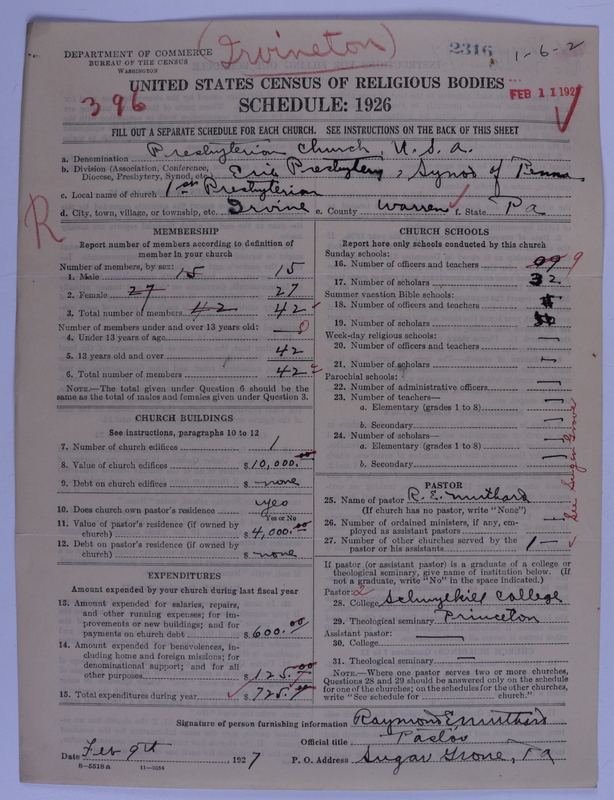 DEPARTMENT OF COMMERCE
BUREAU OF THE CENSUS
WASHINGTON
(Irvineton)
2316
1-6-2
396
UNITED STATES CENSUS OF RELIGIOUS BODIES
SCHEDULE: 1926
FEB 11 192
FILL OUT A SEPARATE SCHEDULE FOR EACH CHURCH. SEE INSTRUCTIONS ON THE BACK OF THIS SHEET
a. Denomination Presbyterian Church, U.S.A.
b. Division (Association, Conference, Diocese, Presbytery, Synod, etc.) Erie Presbytery, Synod of Penna
c. Local name of church 1st Presbyterian
d. City, town, village, or township, etc. Irvine e. County Warren f. State Pa
R
MEMBERSHIP
Report number of members according to definition of member in your church
Number of members, by sex:
1. Male 15 15
2. Female 27 27
3. Total number of members 42 42
Number of members under and over 13 years old:
4. Under 13 years of age — 0
5. 13 years old and over 42
6. Total number of members 42
NOTE.—The total given under Question 6 should be the same as the total of males and females given under Question 3.
CHURCH BUILDINGS
See instructions, paragraphs 10 to 12
7. Number of church edifices 1
8. Value of church edifices $10,000.00
9. Debt on church edifices $ none
10. Does church own pastor's residence yes
Yes or No
11. Value of pastor's residence (if owned by church) $4,000.00
12. Debt on pastor's residence (if owned by church) $ none
EXPENDITURES
Amount expended by your church during last fiscal year
13. Amount expended for salaries, repairs, and other running expenses; for improvements or new buildings; and for payments on church debt $600.00
14. Amount expended for benevolences, including home and foreign missions; for denominational support; and for all other purposes $125.00
15. Total expenditures during year $725.00
CHURCH SCHOOLS
Report here only schools conducted by this church
Sunday schools:
16. Number of officers and teachers 09 9
17. Number of scholars 32
Summer vacation Bible schools:
18. Number of officers and teachers
19. Number of scholars
Week-day religious schools:
20. Number of officers and teachers —
21. Number of scholars —
Parochial schools:
22. Number of administrative officers —
23. Number of teachers—
a. Elementary (grades 1 to 8) —
b. Secondary —
24. Number of scholars—
a. Elementary (grades 1 to 8) —
b. Secondary —
See Sugar Grove
PASTOR
25. Name of pastor R. E. Muthard
(If church has no pastor, write "None")
26. Number of ordained ministers, if any, employed as assistant pastors —
27. Number of other churches served by the pastor or his assistants 1 —
If pastor (or assistant pastor) is a graduate of a college or theological seminary, give name of institution below. (If not a graduate, write "No" in the space indicated.)
Pastor: 2
28. College Schuylkill College
29. Theological seminary Princeton
Assistant pastor:
30. College —
31. Theological seminary —
NOTE.—Where one pastor serves two or more churches, Questions 28 and 29 should be answered only on the schedule for one of the churches; on the schedules for the other churches, write "See schedule for ______ church."
Signature of person furnishing information Raymond E Muthard
Official title Pastor
Date Feb 9th, 1927 P. O. Address Sugar Grove, Pa
6—5518a 11—9034